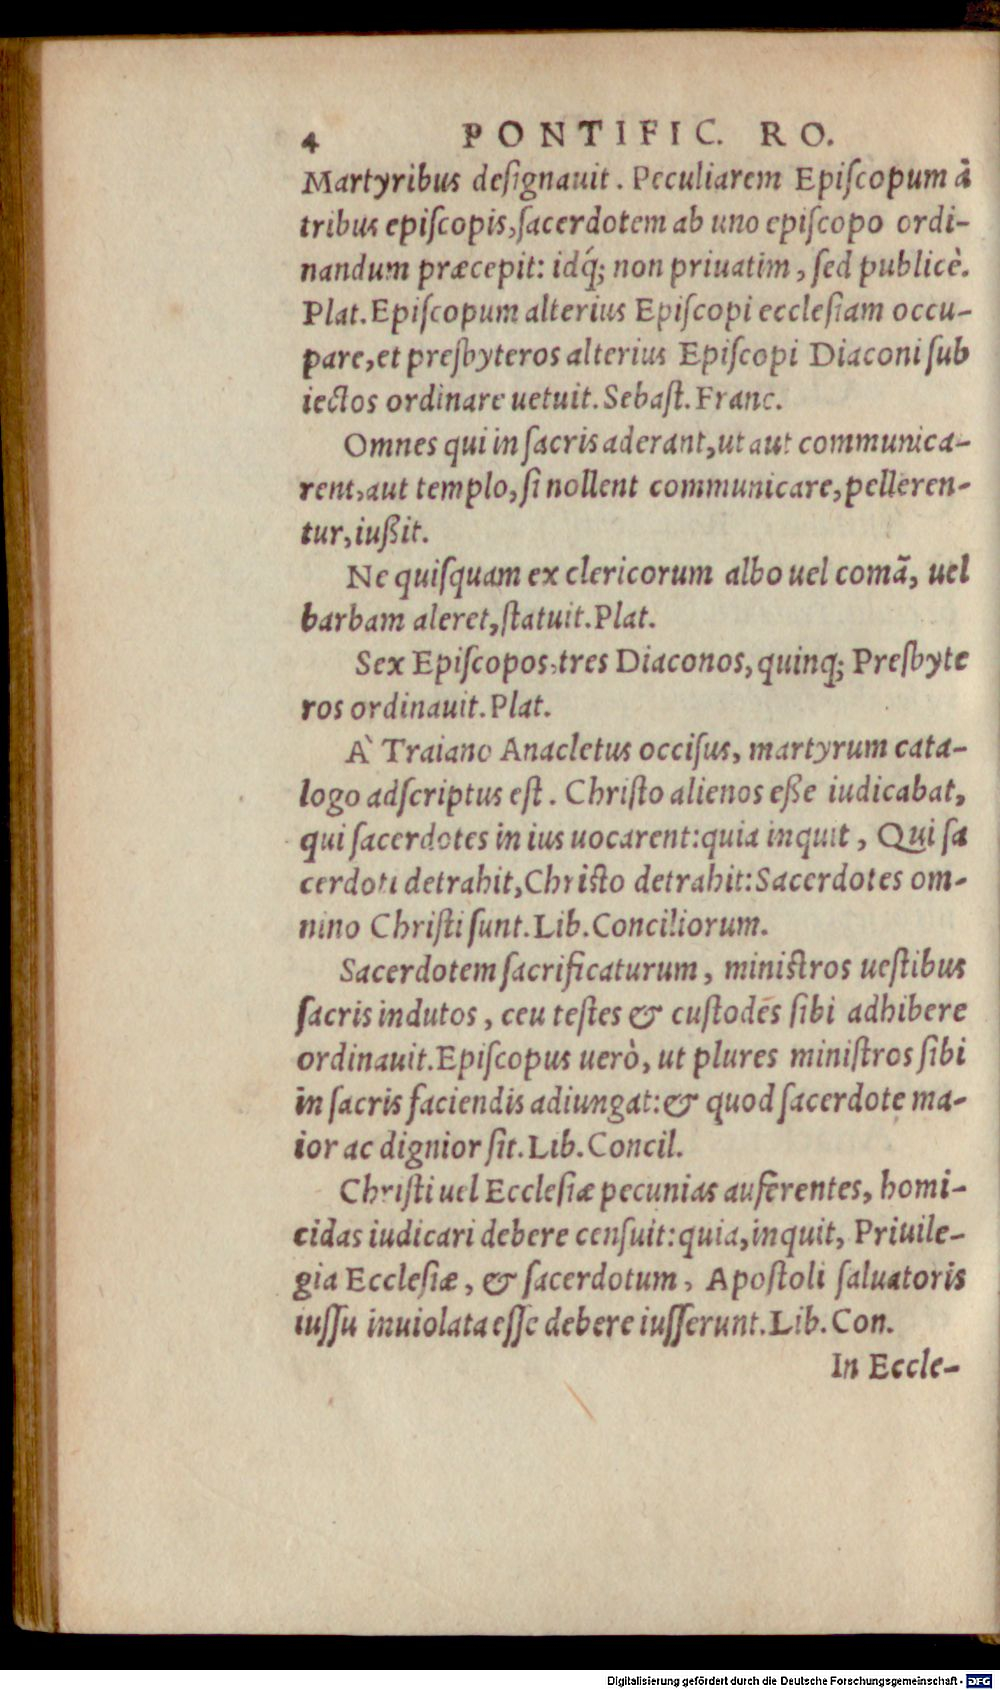 4 PONTIFIC. RO.
Martyribus deſignauit. Peculiarem Epiſcopum à
tribus epiſcopis, ſacerdotem ab uno epiſcopo ordi-
nandum præcepit: idq́; non priuatim, ſed publicè.
Plat. Epiſcopum alterius Epiſcopi eccleſiam occu-
pare, et preſbyteros alterius Epiſcopi Diaconi ſub
iectos ordinare uetuit. Sebaſt. Franc.
Omnes qui in ſacris aderant, ut aut communica-
rent, aut templo, ſi nollent communicare, pelleren-
tur, iußit.
Ne quiſquam ex clericorum albo uel comã, uel
barbam aleret, ſtatuit. Plat.
Sex Epiſcopos, tres Diaconos, quinq; Preſbyte
ros ordinauit. Plat.
À Traiano Anacletus occiſus, martyrum cata-
logo adſcriptus eſt. Chriſto alienos eße iudicabat,
qui ſacerdotes in ius uocarent: quia inquit, Qui ſa
cerdoti detrahit, Chriſto detrahit: Sacerdotes om-
nino Chriſti ſunt. Lib. Conciliorum.
Sacerdotem ſacrificaturum, miniſtros ueſtibus
ſacris indutos, ceu teſtes & cuſtodes ſibi adhibere
ordinauit. Epiſcopus uerò, ut plures miniſtros ſibi
in ſacris faciendis adiungat: & quod ſacerdote ma-
ior ac dignior ſit. Lib. Concil.
Chriſti uel Eccleſiæ pecunias auferentes, homi-
cidas iudicari debere cenſuit: quia, inquit, Priuile-
gia Eccleſiæ, & ſacerdotum, Apoſtoli ſaluatoris
iuſſu inuiolata eſſe debere iuſſerunt. Lib. Con.
In Eccle-
Digitalisierung gefördert durch die Deutsche Forschungsgemeinschaft - DFG